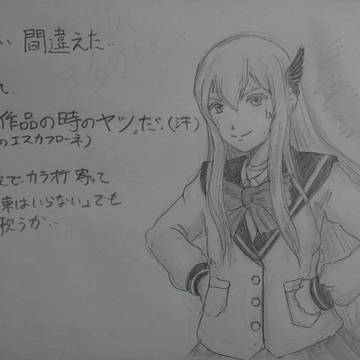 い 間違えた‥
て‥
作品の時のヤツ„だ‥(汗)
のエスカフローネ)
で、カラオケ寄って
束はいらない」でも
歌うか‥